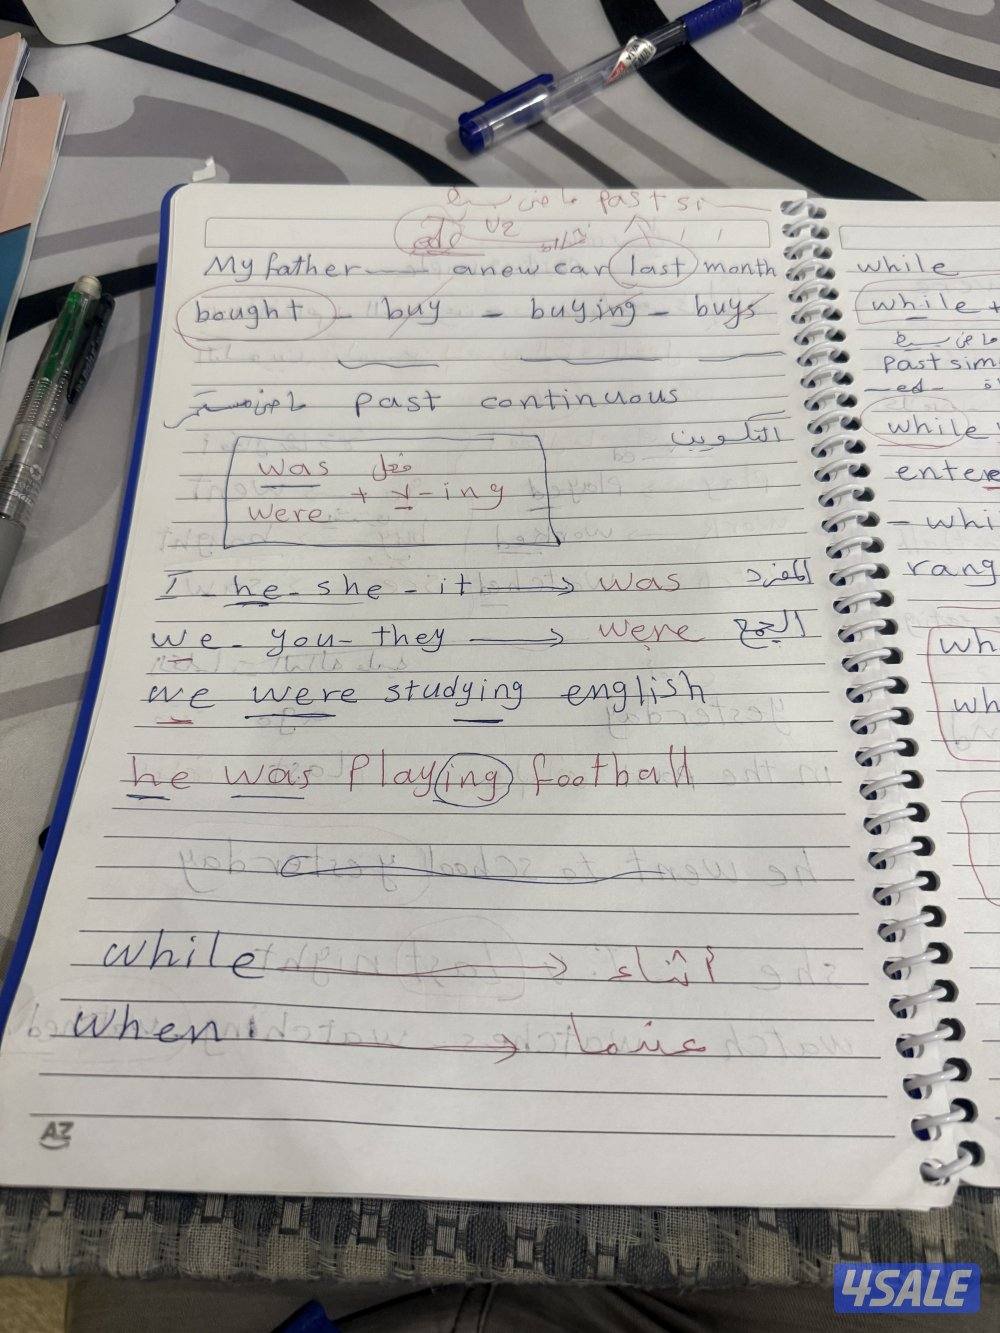 ماضي بسيط past si
ed V2
My father —— a new car last month
bought - buy - buying - buys
ماضي مستمر past continuous
التكوين
was فعل
were + V-ing
I - he - she - it → was المفرد
we - you - they → were الجمع
we were studying english
he was Playing football
while → أثناء
when → عندما
AZ
while
while +
ماضي بسيط
Past sim
-ed-
while
entere
- whi
rang
wh
wh
4SALE